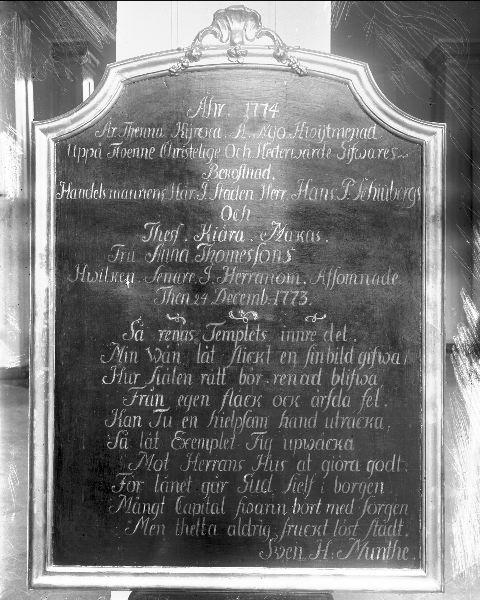 Åhr. 1774
Är Thenna Kyrcka, Å Nyo, Hwijtmenad
Uppå Twenne Christelige Och Hederwärde Gifwares
Bekostnad,
Handelsmannens Här I Staden Herr. Hans P. Schiubergs
Och
Thesf. Kiära Makas
Fru Anna Thomesfons
Hwilken Senare I Herranom Afsomnade
Then 24 Decemb. 1773.
Så renas Templets innre del.
Min Wän, lät slickt en sinbild gifwa
Hur siälen rätt bör renad blifwa
Från egen fläck ock ärfda fel.
Kan Tu en hielpsam hand utsträcka,
Så lät Exemplet Tig upwäcka
Mot Herrans Hus at giöra godt.
För lånet går Gud sielf i borgen
Mångt Capital swann bort med sorgen
Men thetta aldrig fruckt löst stådt.
Swen H. Munthe.